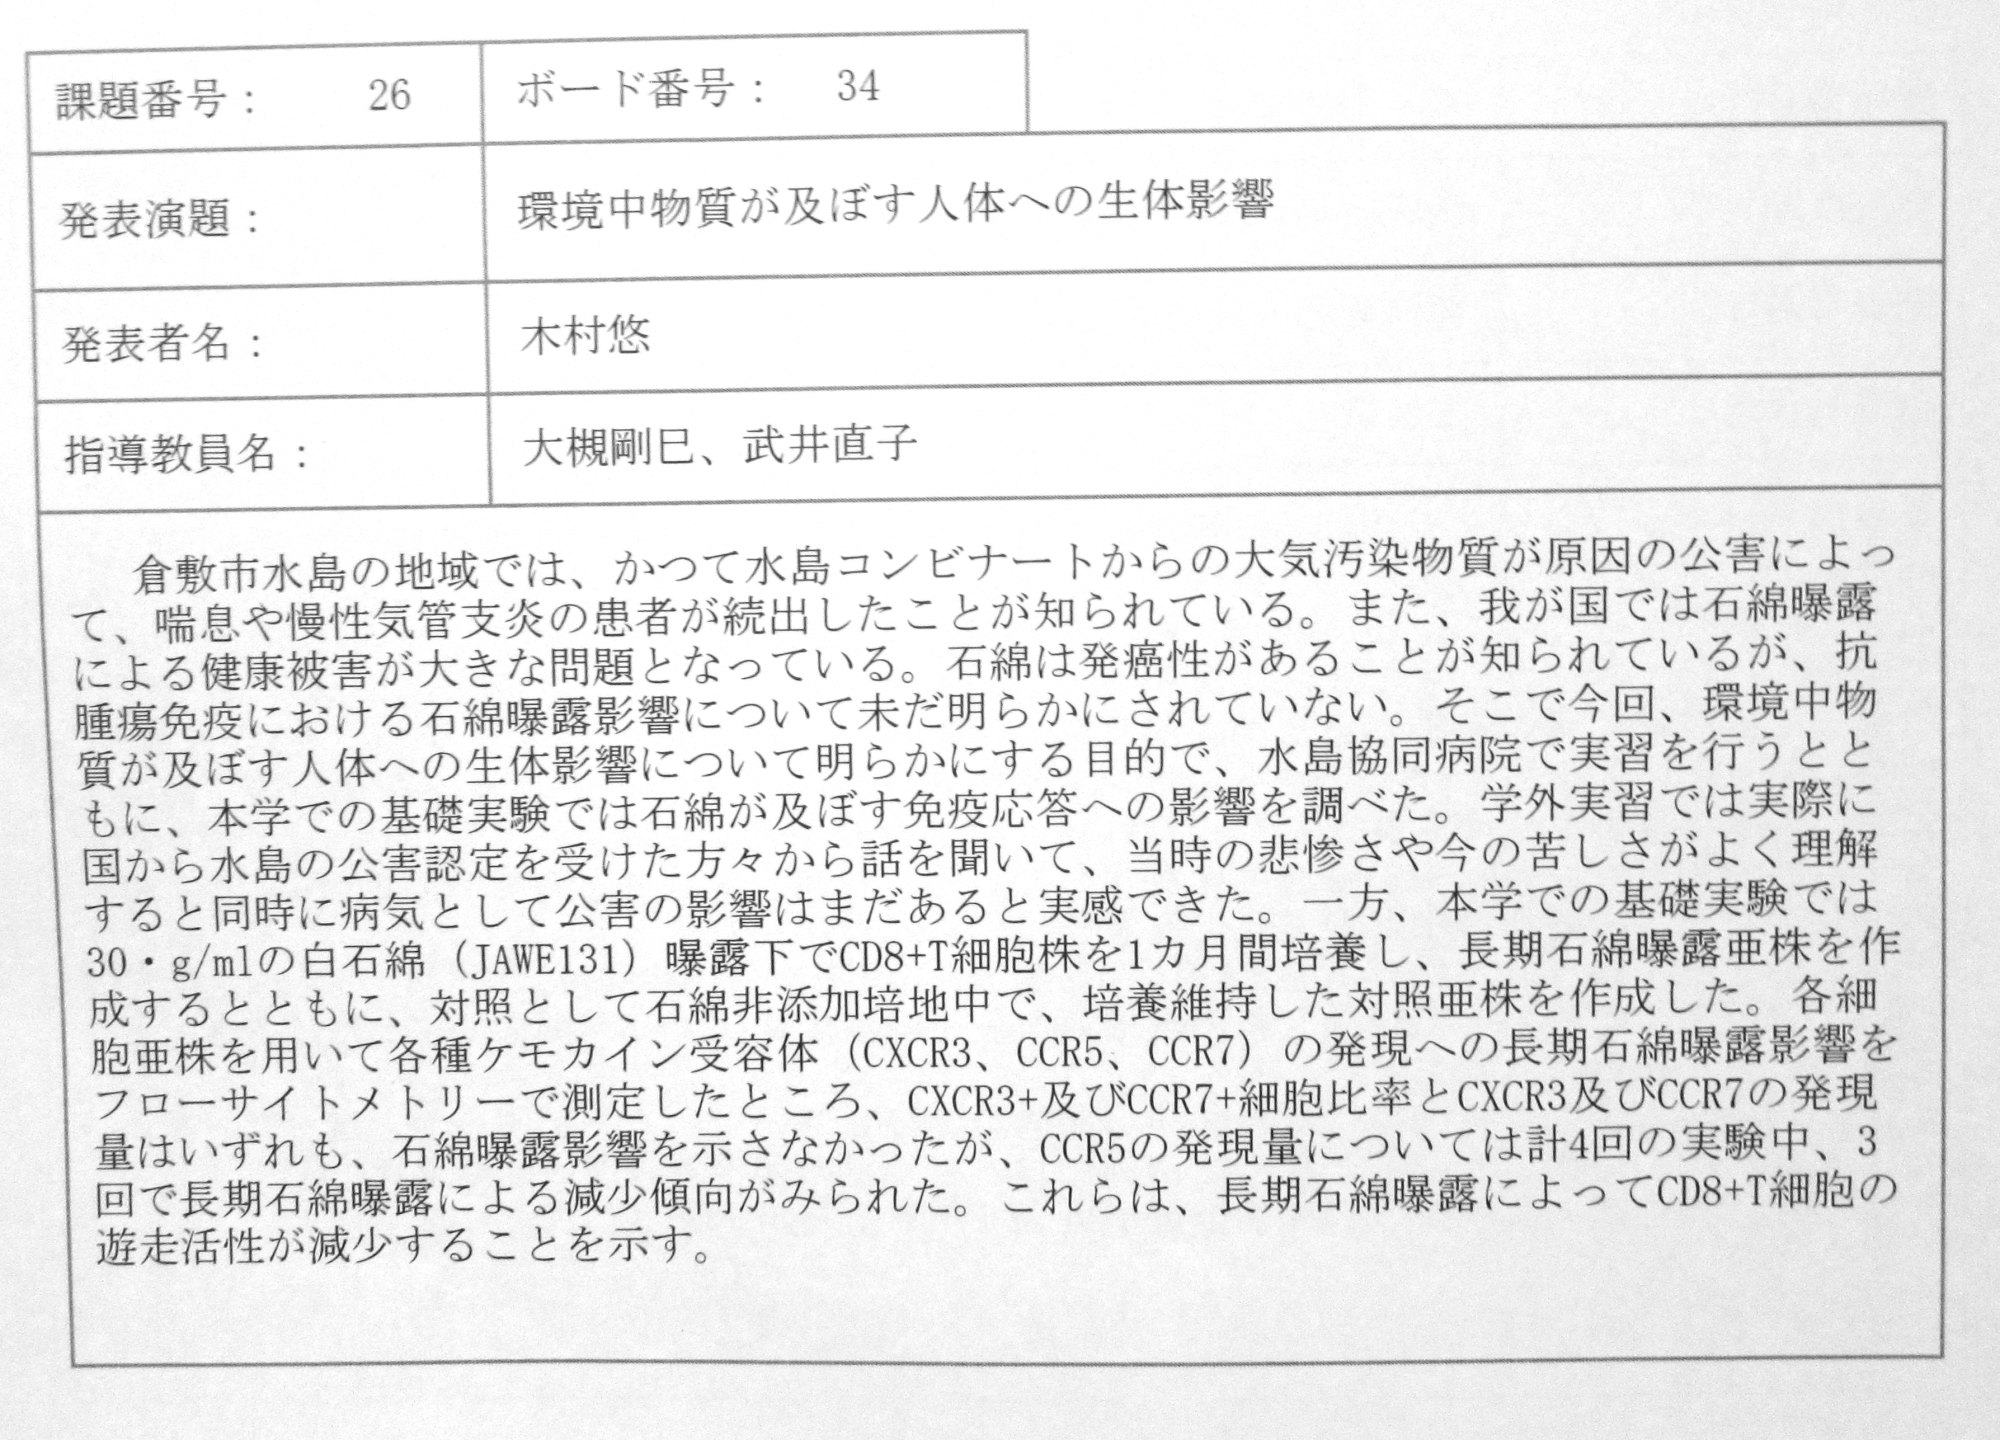 課題番号： 26 ボード番号： 34
発表演題： 環境中物質が及ぼす人体への生体影響
発表者名： 木村悠
指導教員名： 大槻剛巳、武井直子
倉敷市水島の地域では、かつて水島コンビナートからの大気汚染物質が原因の公害によっ
て、喘息や慢性気管支炎の患者が続出したことが知られている。また、我が国では石綿曝露
による健康被害が大きな問題となっている。石綿は発癌性があることが知られているが、抗
腫瘍免疫における石綿曝露影響について未だ明らかにされていない。そこで今回、環境中物
質が及ぼす人体への生体影響について明らかにする目的で、水島協同病院で実習を行うとと
もに、本学での基礎実験では石綿が及ぼす免疫応答への影響を調べた。学外実習では実際に
国から水島の公害認定を受けた方々から話を聞いて、当時の悲惨さや今の苦しさがよく理解
すると同時に病気として公害の影響はまだあると実感できた。一方、本学での基礎実験では
30・g/mlの白石綿（JAWE131）曝露下でCD8+T細胞株を1カ月間培養し、長期石綿曝露亜株を作
成するとともに、対照として石綿非添加培地中で、培養維持した対照亜株を作成した。各細
胞亜株を用いて各種ケモカイン受容体（CXCR3、CCR5、CCR7）の発現への長期石綿曝露影響を
フローサイトメトリーで測定したところ、CXCR3+及びCCR7+細胞比率とCXCR3及びCCR7の発現
量はいずれも、石綿曝露影響を示さなかったが、CCR5の発現量については計4回の実験中、3
回で長期石綿曝露による減少傾向がみられた。これらは、長期石綿曝露によってCD8+T細胞の
遊走活性が減少することを示す。